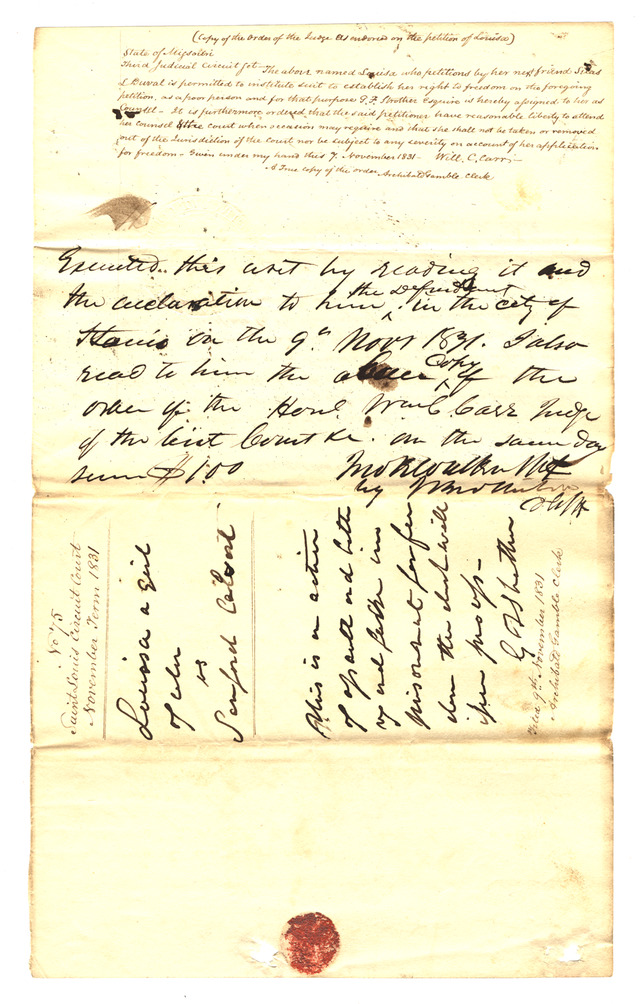 (Copy of the order of the Judge as endorsed on the petition of Louisa)
State of Missouri
Third Judicial Circuit Sct. The above named Louisa who petitions by her next friend
L Duval is permitted to institute suit to establish her right to freedom on the foregoing
petition, as a poor person and for that purpose G. F. Strother Esquire is hereby assigned to her as
Counsel – It is furthermore ordered that the said petitioner have reasonable liberty to attend
her counsel & the court when occasion may require and that she shall not be taken or removed
out of the Jurisdiction of the Court nor be subject to any severity on account of her application
for freedom – Given under my hand this 7. November 1831 – Will. C. Carr –
A True copy of the order Archibald Gamble Clerk
Executed this writ by reading it and
the declaration to him the Defendant in the city of
St Louis on the 9th Novr 1831. I also
read to him the Copy of the
order of the Honl Will C Carr Judge
of the Cirt Court &c. on the same day
$1.00 Jno K Walker Shff
by
D Shff
No 75
Saint Louis Circuit Court
November Term 1831
Louisa a girl
of color
vs
Sanford Calvert
This is an action
of assault and batte
ry and false im
prisonment for free
dom the clerk will
issue process –
G F Strother
Filed 9th November 1831
Archibald Gamble Clerk